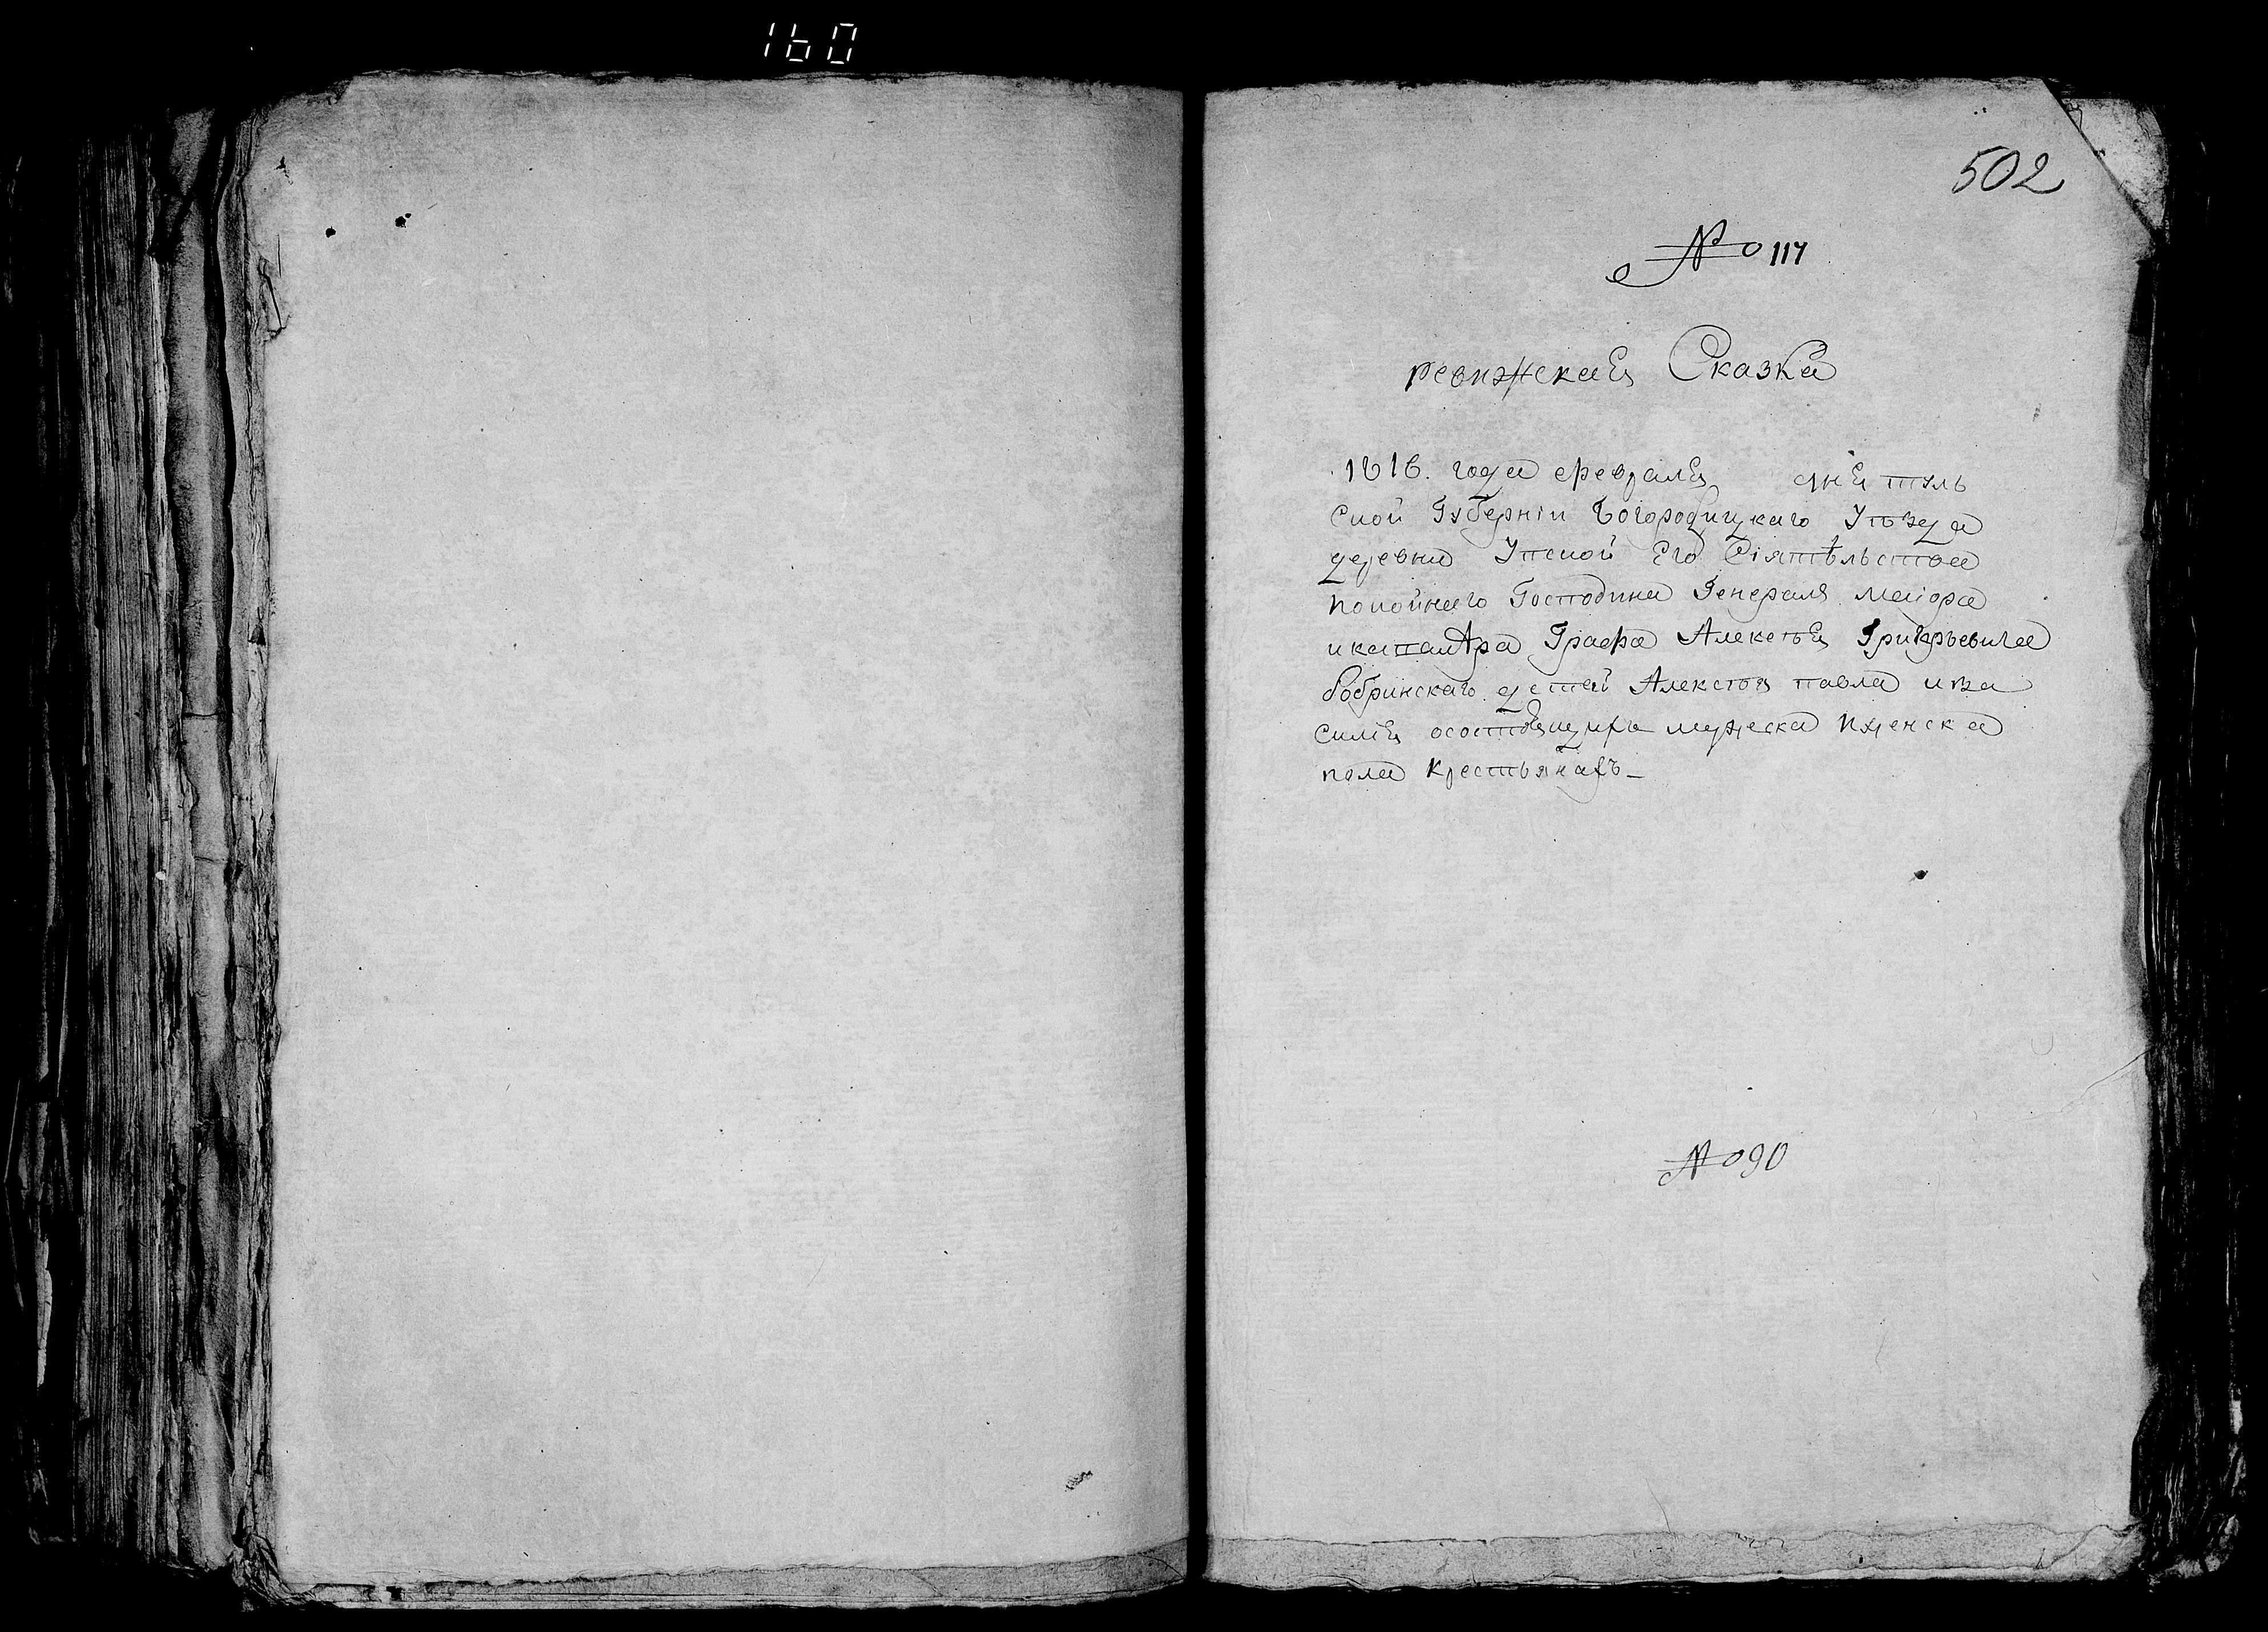 160
502
№ 117
ревизская Сказка
1816. года февраля дня туль
ской Губерніи Богородицкаго Уѣзда
деревни Упской Его Сіятѣльства
покойнаго Господина Генерала маіора
икавалѣра Графа Алексѣя Григорьевича
бобринскаго детей Алексѣя павла ива
силія осостоящихъ мужеска иженска
пола крестьянахъ
№ 90